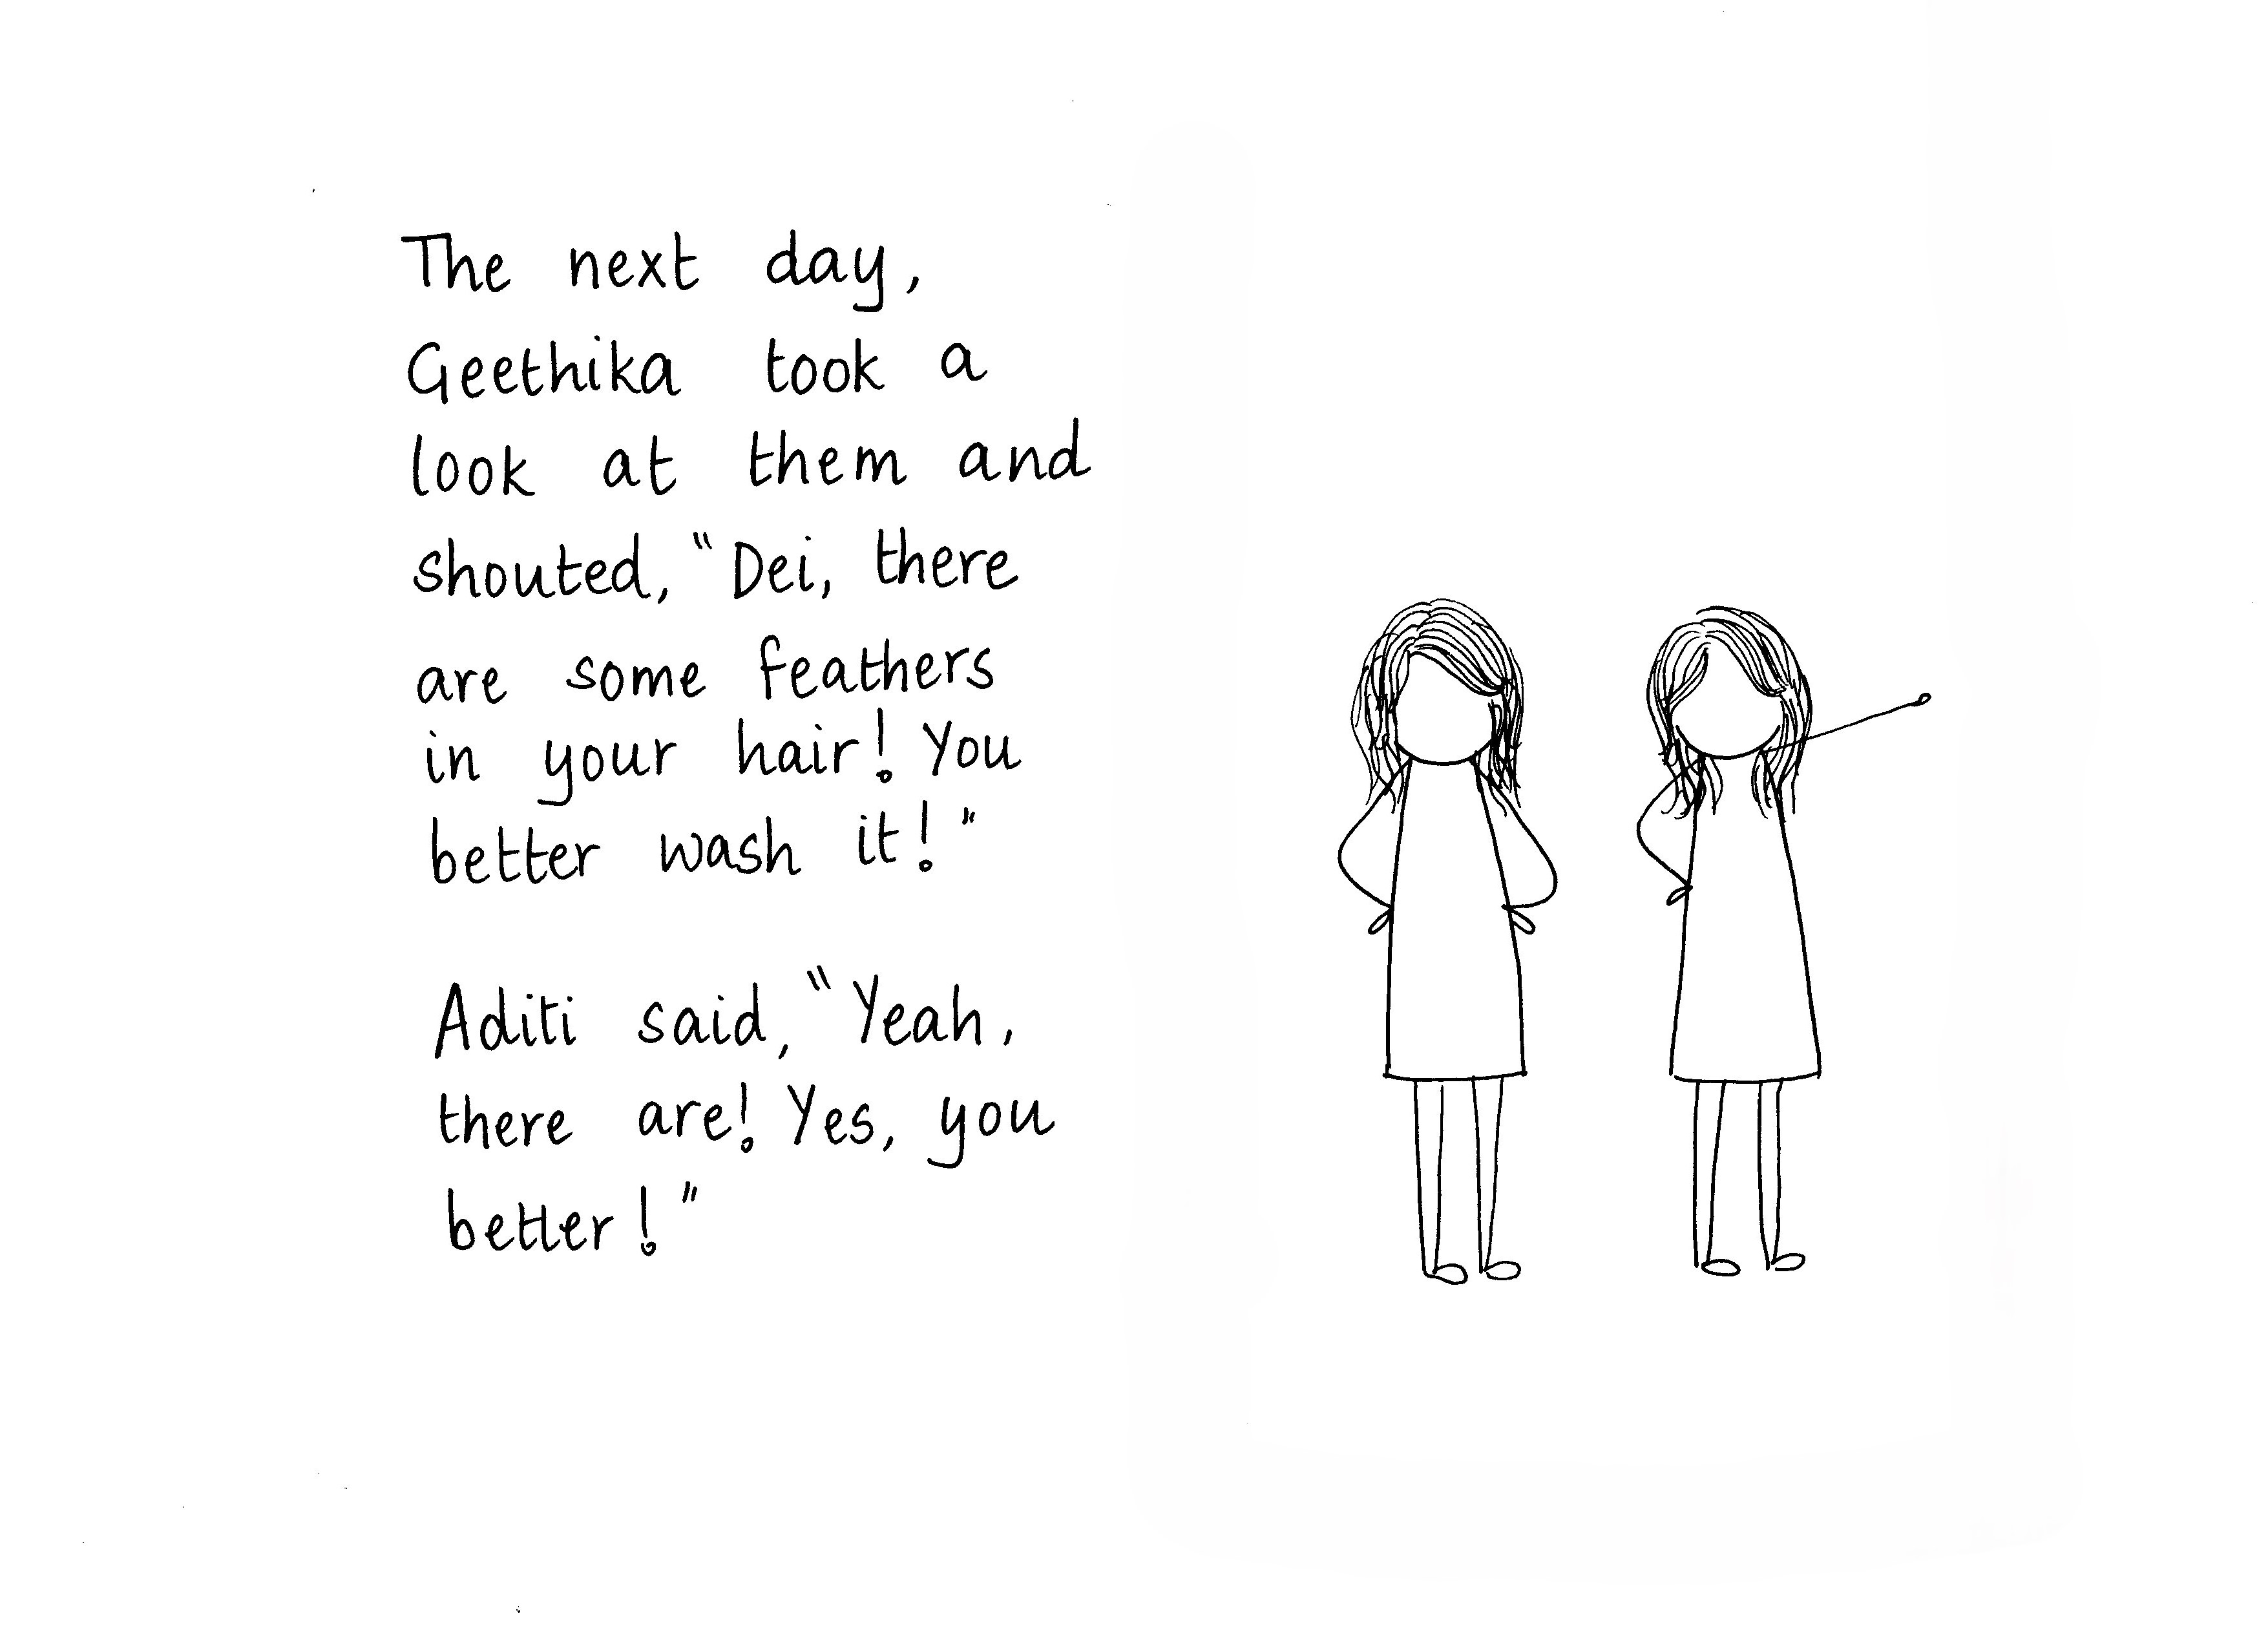 The next day,
Geethika took a
look at them and
shouted, "Dei, there
are some feathers
in your hair! You
better wash it!"
Aditi said, "Yeah,
there are! Yes, you
better!"